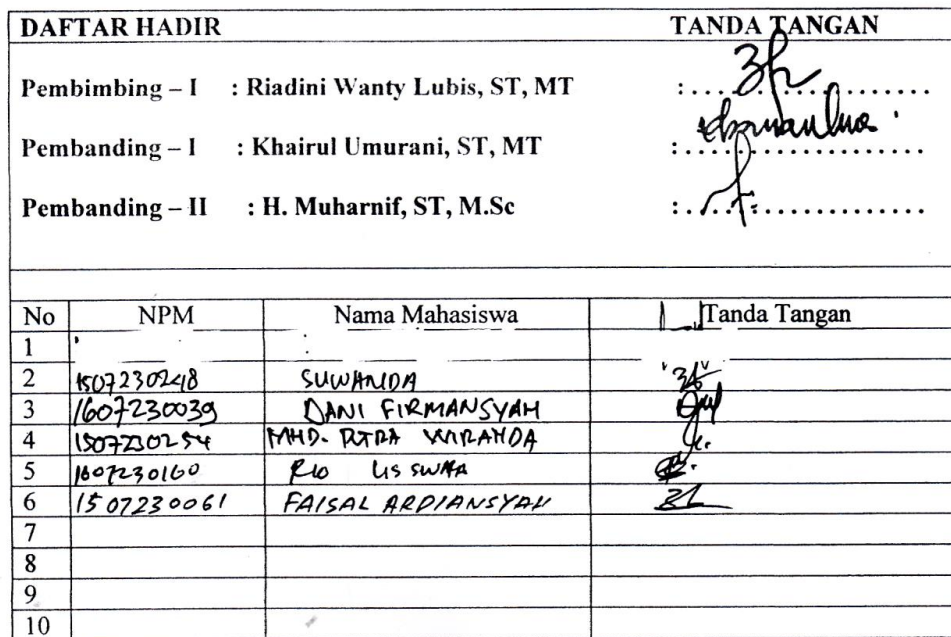 DAFTAR HADIR TANDA TANGAN
Pembimbing – I : Riadini Wanty Lubis, ST, MT :....................
Pembanding – I : Khairul Umurani, ST, MT :....................
Pembanding – II : H. Muharnif, ST, M.Sc :....................
No NPM Nama Mahasiswa Tanda Tangan
1
2 1507230248 SUWANDA
3 1607230039 DANI FIRMANSYAH
4 1507230254 MHD. WIRANDA
5 1607230160 RIO
6 1507230061 FAISAL ARDIANSYAH
7
8
9
10